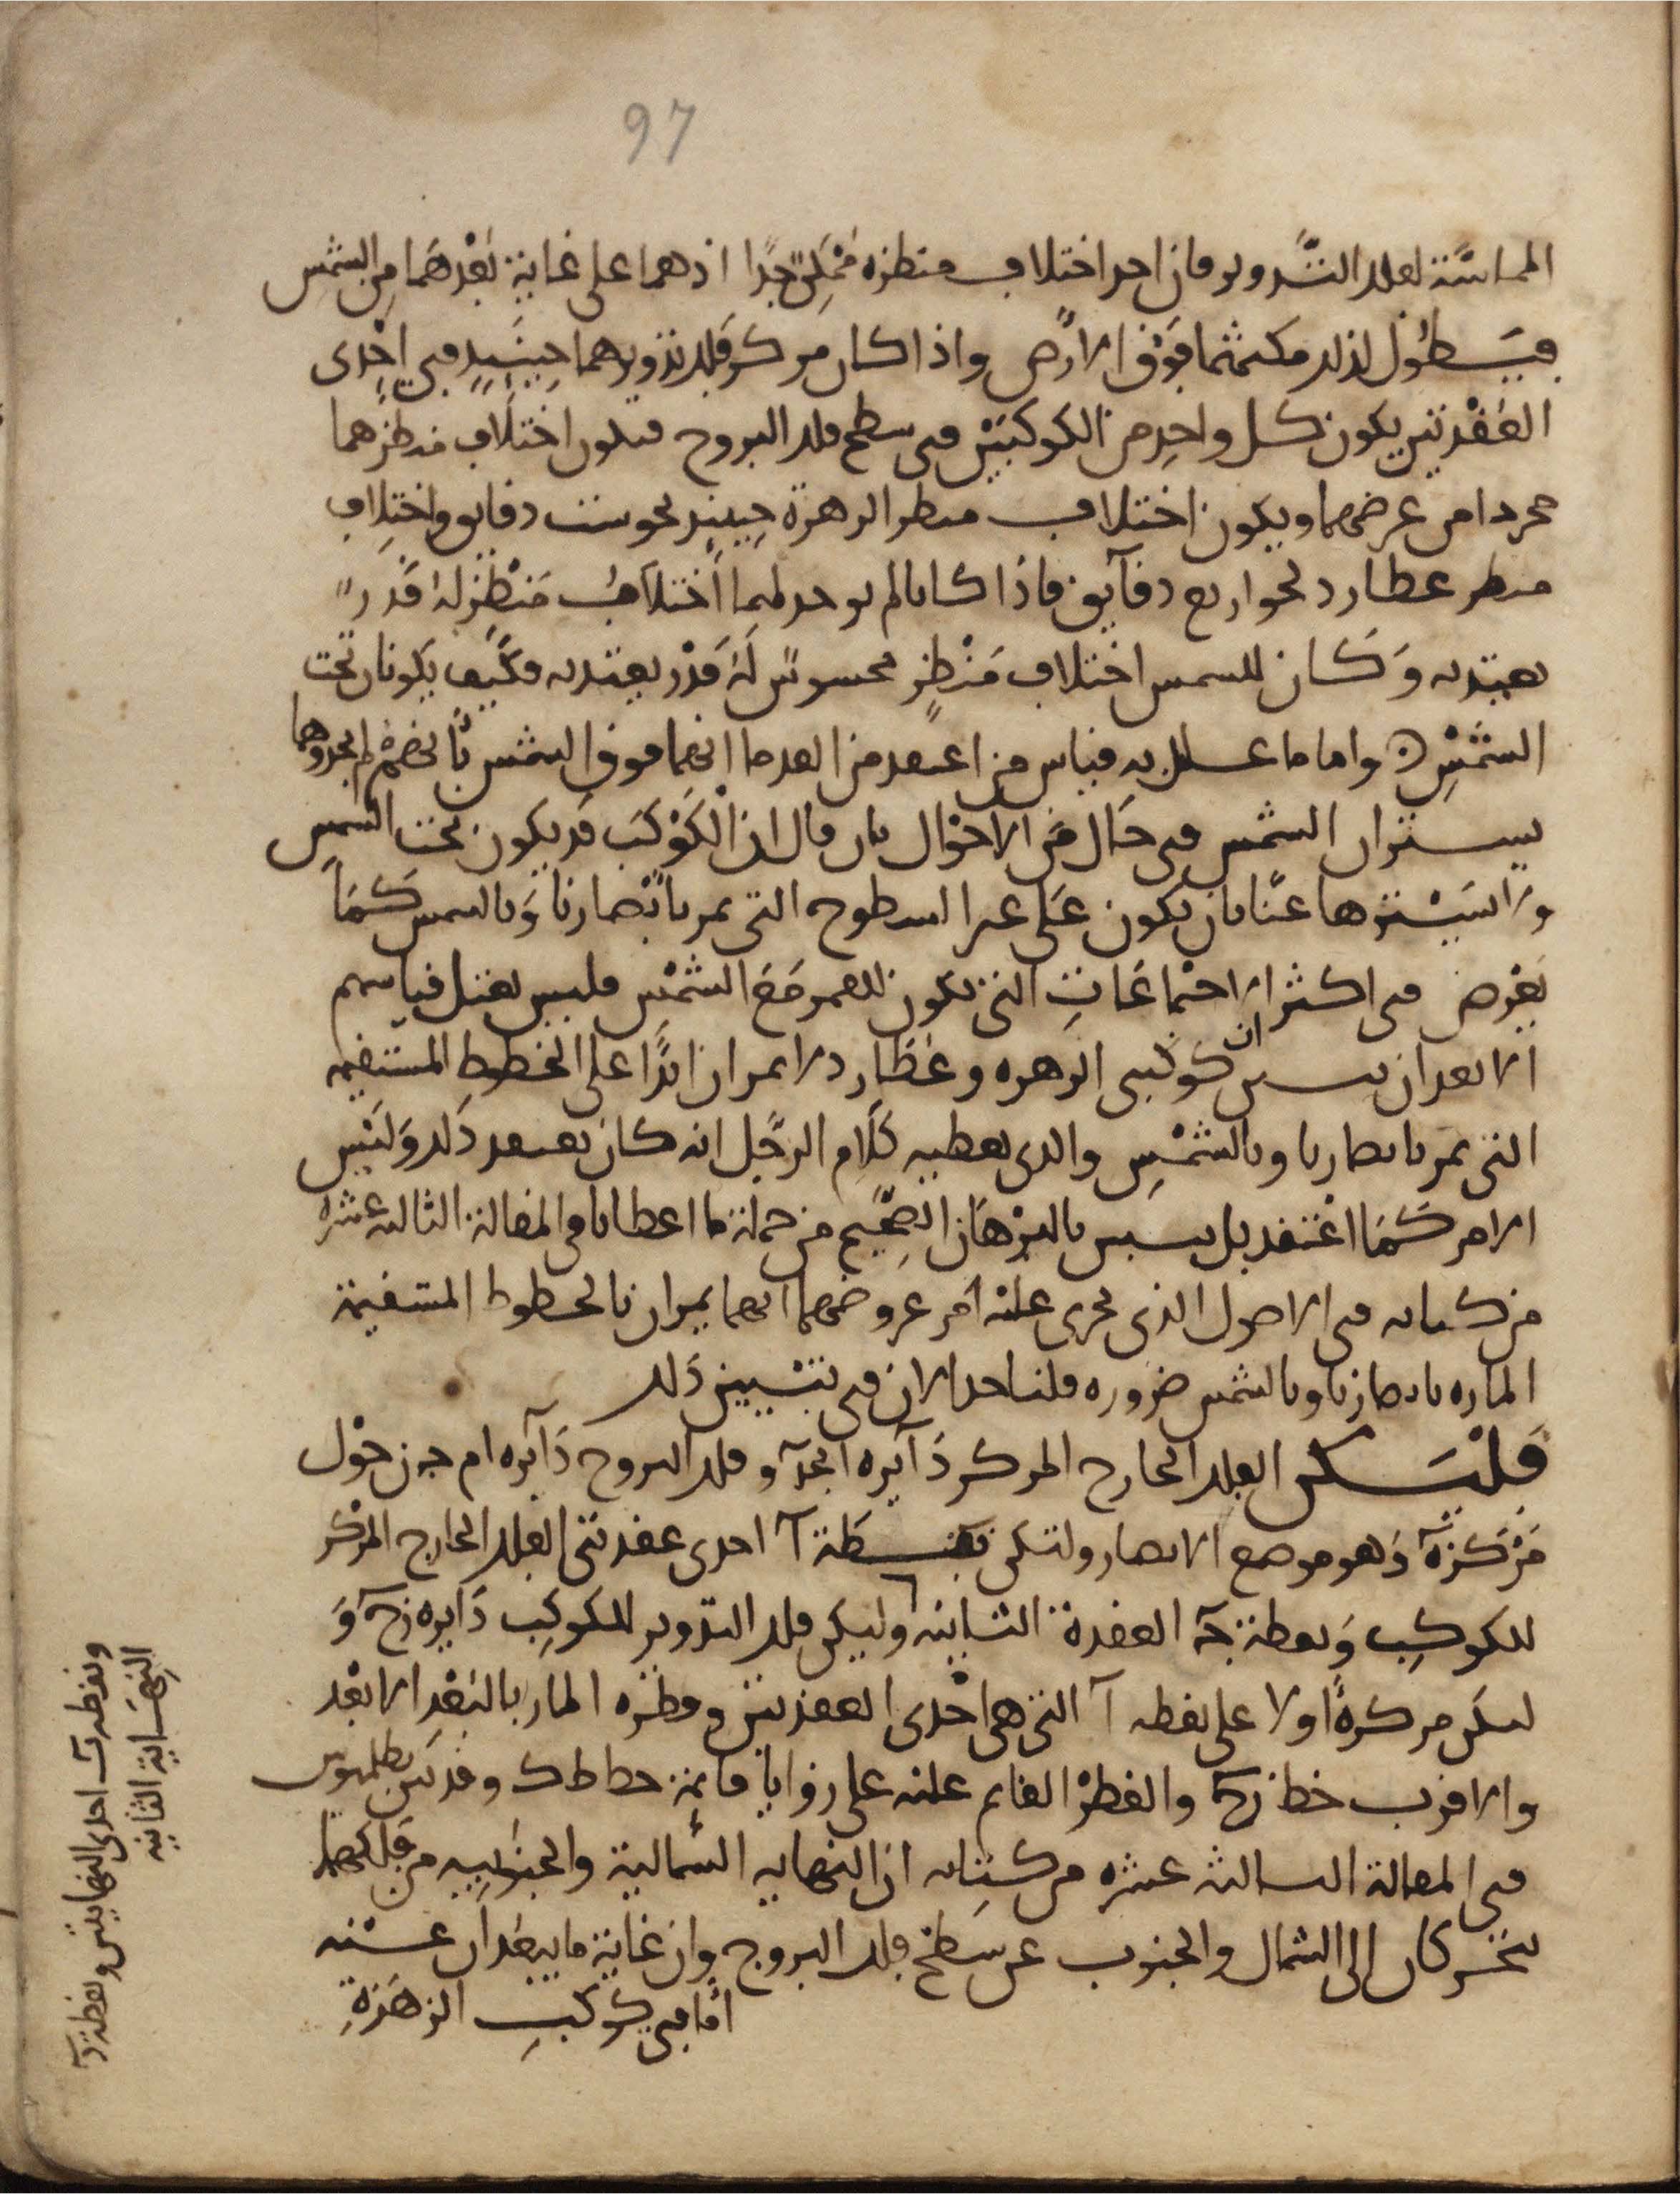 97
المماسّة لفلك التدوير فان اخذ اختلاف منظره ممكن جدا اذ هما على غاية بعدهما من الشمس
فيطول لذلك مكثهما فوق الارض واذا كان مركز فلك تدويرهما حينيذ في احدى
العقدتين يكون كل واحد من الكوكبين في سطح فلك البروج فيكون اختلاف منظرهما
مجردا من عرضهما ويكون اختلاف منظر الزهرة حينيذ نحو ست دقايق واختلاف
منظر عطارد نحو اربع دقآيق فاذا كانا لم يوجد لهما اختلاف منظر له قدر
يعتد به وكان للشمس اختلاف منظر محسوس له قدر يعتد به فكيف يكونان تحت
الشمس واما ما علل به قياس من اعتقد من القدما انهما فوق الشمس بانهم لم يجدوهما
يستران الشمس في حال من الاحوال بان قال ان الكوكب قد يكون تحت الشمس
ولا يسترها عنا بان يكون على غير السطوح التي تمر بابصارنا وبالشمس كما
يعرض في اكثر الاجتماعات التي تكون للقمر مع الشمس فليس يبطل قياسهم
الا بعد ان يبين ان كوكبي الزهره وعطارد لا يمران ابدا على الخطوط المستقيمه
التي تمر بابصارنا وبالشمس والذي يعطيه كلام الرجل انه كان يعتقد ذلك وليس
الامر كما اعتقد بل يتبين بالبرهان الصحيح من جملة ما اعطانا في المقالة الثالثه عشره
من كتابه في الاصول الذي يجري عليه امر عروضهما انهما يمران بالخطوط المستقيمة
الماره بابصارنا وبالشمس ضروره فلناخذ الان في تبيين ذلك
فليكن الفلك الخارج المركز دآيره ابجد وفلك البروج دآيره ام جن حول
مركز ه وهو موضع الابصار ولتكن نقطة آ احدى عقدتي الفلك الخارج المركز
للكوكب ونقطة جـ العقدة الثانيه وليكن فلك التدوير للكوكب دايره زح و
ليكن مركزه اولا على نقطه آ التي هي احدى العقدتين وقطره المار بالبعد الابعد
والاقرب خط زح والقطر القايم عليه على زوايا قايمة خط طك وقد بين بطلميوس
في المقالة الثالثه عشره من كتابه ان النهايه الشمالية والجنوبيه من فلكيهما
تتحركان الى الشمال والجنوب عن سطح فلك البروج وان غاية ما يبعدان عنه
اما في كوكب الزهرة
ونقطة ب احدى النهايتين ونقطة د
النهاية الثانيه